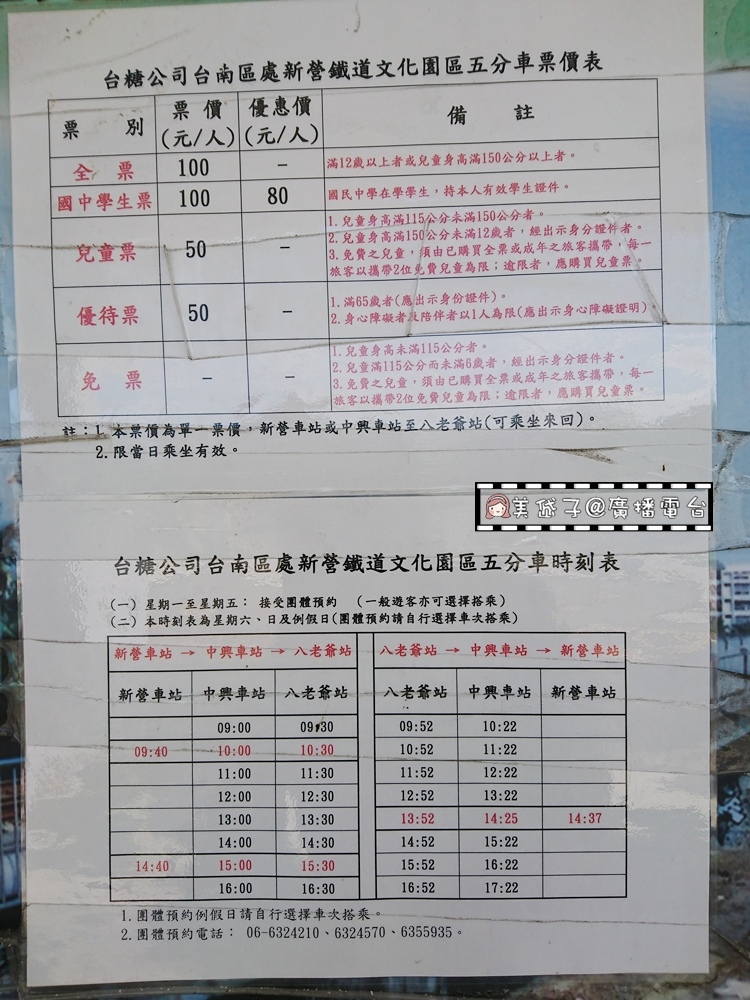 台糖公司台南區處新營鐵道文化園區五分車票價表
票 別 票 價 (元/人) 優惠價 (元/人) 備 註
全 票 100 － 滿12歲以上者或兒童身高滿150公分以上者。
國中學生票 100 80 國民中學在學學生，持本人有效學生證件。
兒童票 50 －
1.兒童身高滿115公分未滿150公分者。
2.兒童身高滿150公分未滿12歲者，經出示身分證件者。
3.免費之兒童，須由已購買全票或成年之旅客攜帶，每一
旅客以攜帶2位免費兒童為限；逾限者，應購買兒童票。
優待票 50 －
1.滿65歲者(應出示身份證件)。
2.身心障礙者及陪伴者以1人為限(應出示身心障礙證明)。
免 票 － －
1.兒童身高未滿115公分者。
2.兒童滿115公分而未滿6歲者，經出示身分證件者。
3.免費之兒童，須由已購買全票或成年之旅客攜帶，每一
旅客以攜帶2位免費兒童為限；逾限者，應購買兒童票。
註：1.本票價為單一票價，新營車站或中興車站至八老爺站(可乘坐來回)。
2.限當日乘坐有效。
美岱子@廣播電台
台糖公司台南區處新營鐵道文化園區五分車時刻表
(一) 星期一至星期五： 接受團體預約 (一般遊客亦可選擇搭乘)
(二) 本時刻表為星期六、日及例假日(團體預約請自行選擇車次搭乘)
新營車站 → 中興車站 → 八老爺站 八老爺站 → 中興車站 → 新營車站
新營車站 中興車站 八老爺站 八老爺站 中興車站 新營車站
09:00 09:30 09:52 10:22
09:40 10:00 10:30 10:52 11:22
11:00 11:30 11:52 12:22
12:00 12:30 12:52 13:22
13:00 13:30 13:52 14:25 14:37
14:00 14:30 14:52 15:22
14:40 15:00 15:30 15:52 16:22
16:00 16:30 16:52 17:22
1.團體預約例假日請自行選擇車次搭乘。
2.團體預約電話： 06-6324210、6324570、6355935。